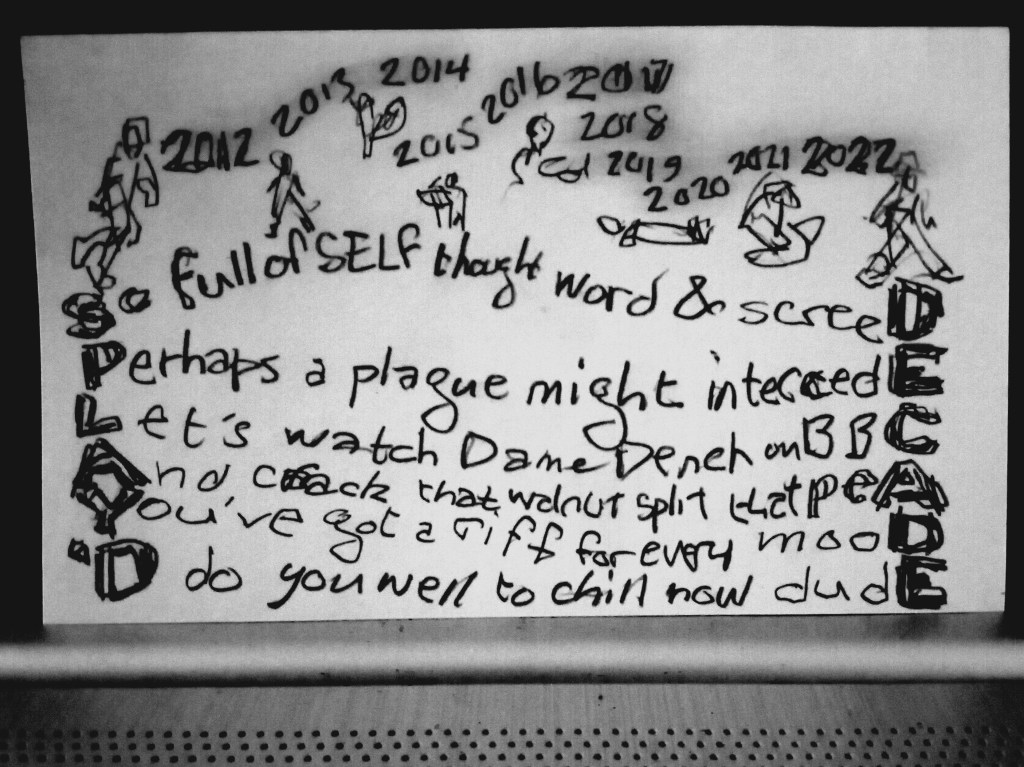 2012
2013
2014
2015
2016
2017
2018
2019
2020
2021
2022
So full of SELF thought word & screeD
Perhaps a plague might interceedE
Let's watch Dame Dench on BBC
And crack that walnut split that peA
You've got a riff for every mooD
'D do you well to chill now dudE